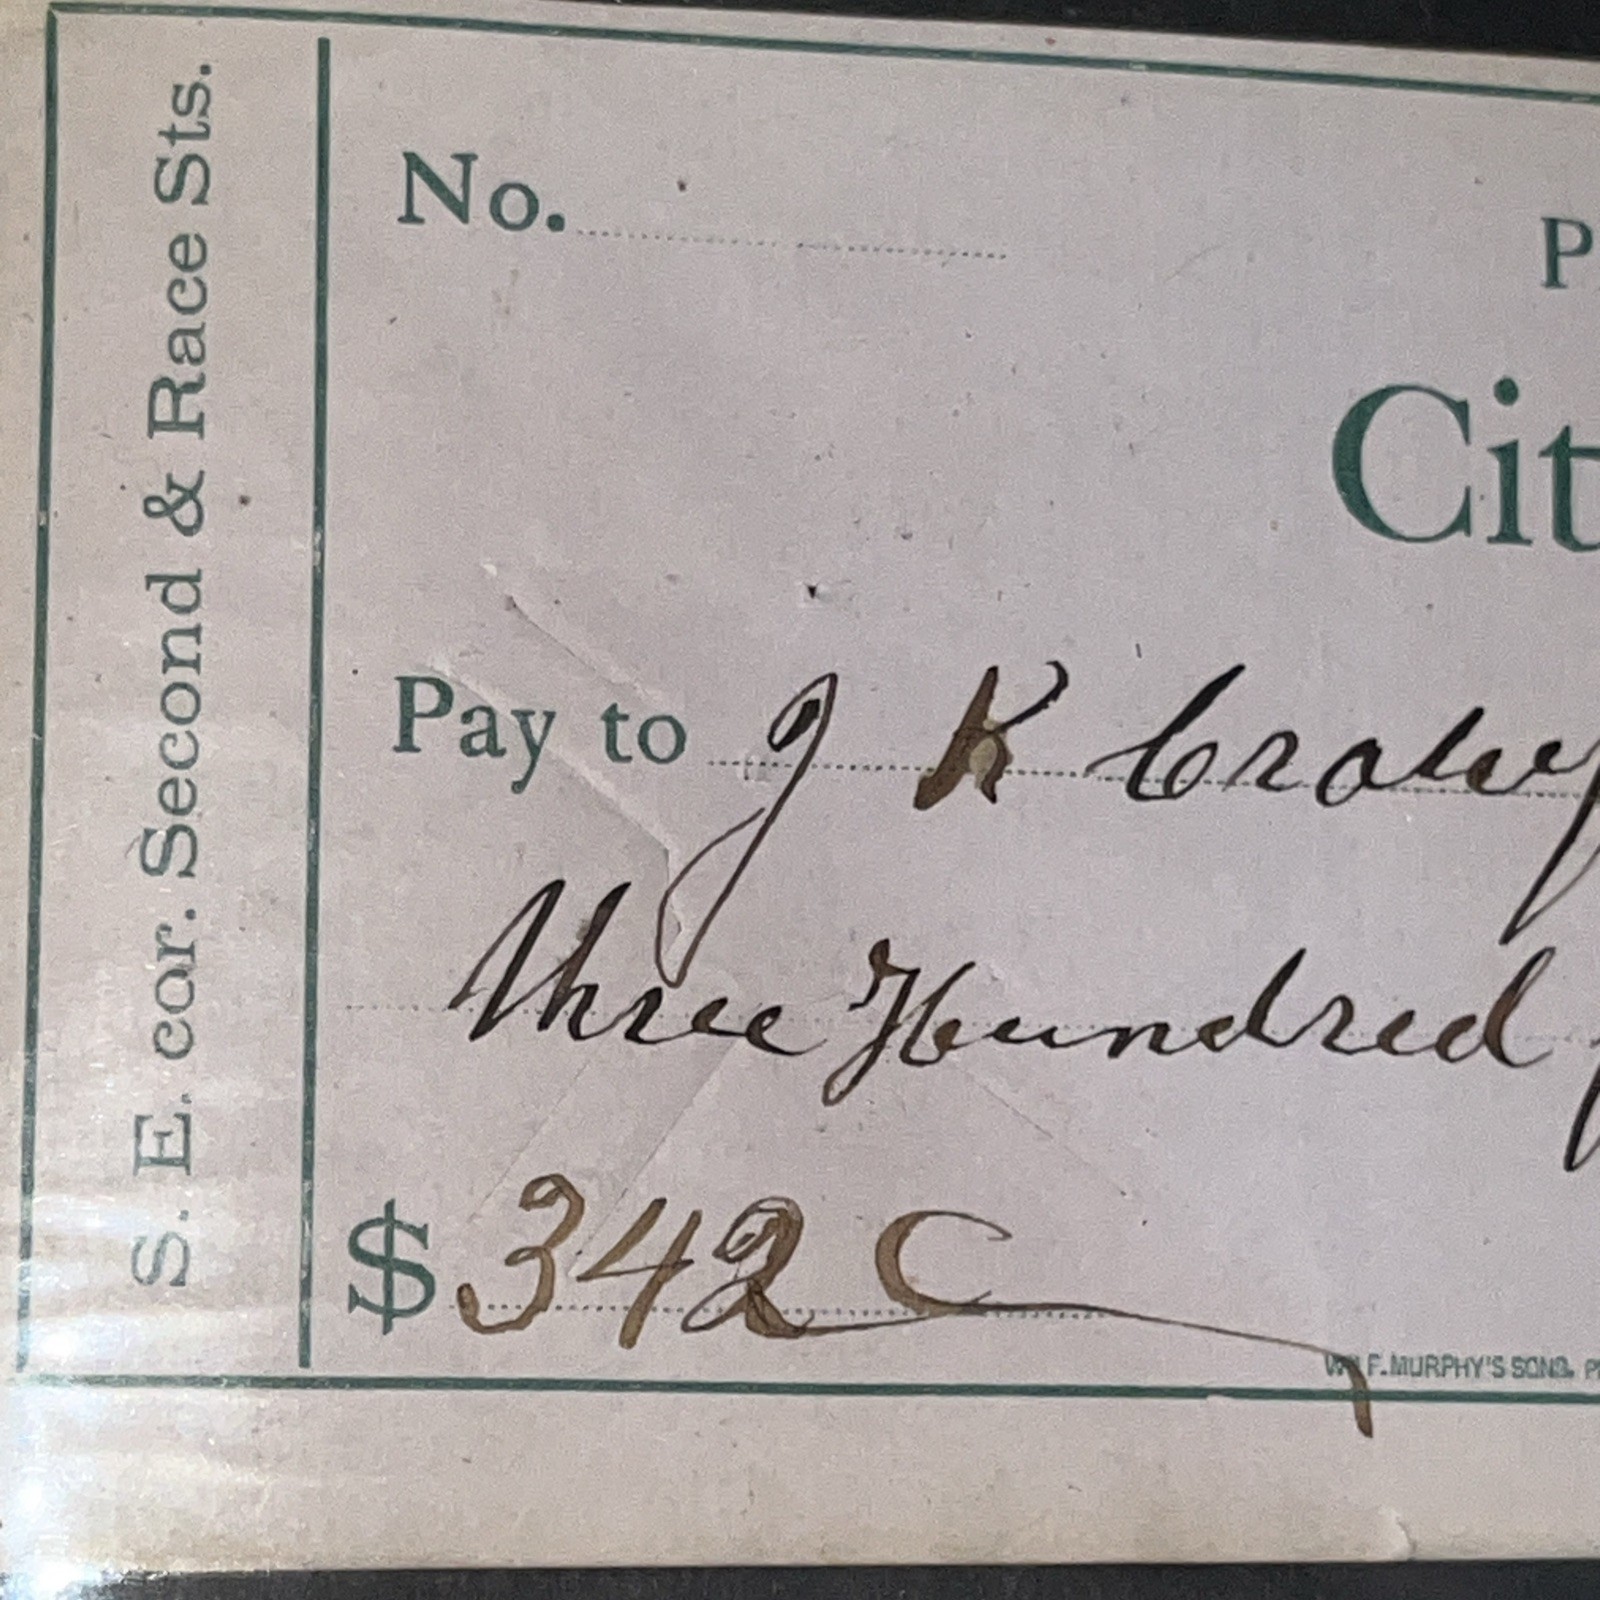 S. E. cor. Second & Race Sts.
No.
P
Cit
Pay to J K Craw
Three Hundred
$342
WM F. MURPHY'S SONS. P